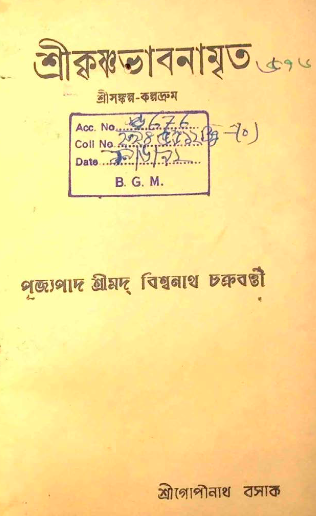 শ্রীকৃষ্ণভাবনামৃত
শ্রীসঙ্কল্প-কল্পদ্রুম
Acc. No.
Coll No.
Date
B. G. M.
পূজ্যপাদ শ্রীমদ্ বিশ্বনাথ চক্রবর্ত্তী
শ্রীগোপীনাথ বসাক